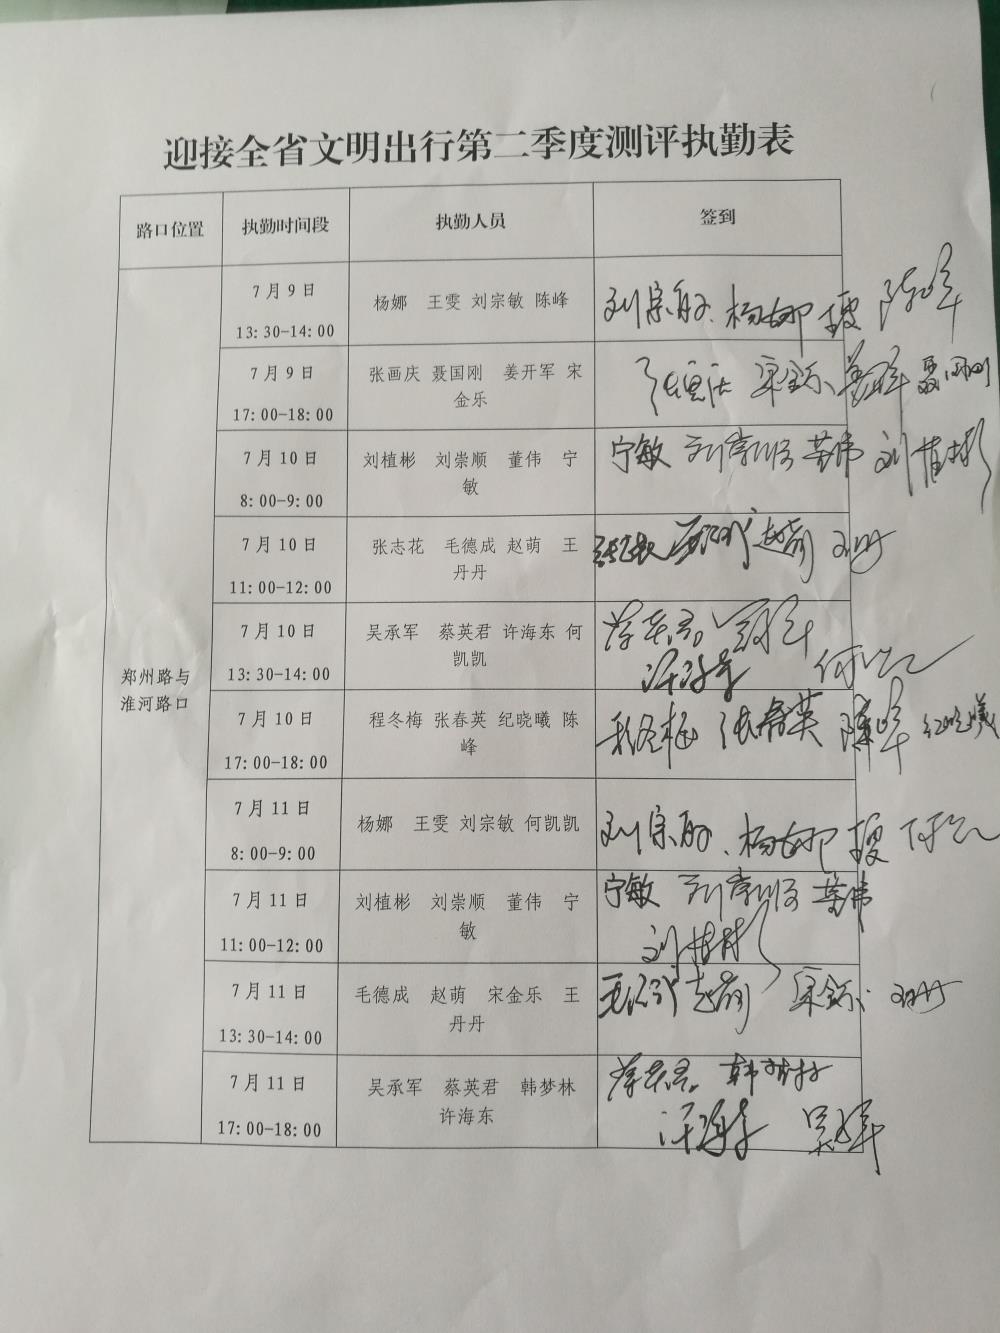 迎接全省文明出行第二季度测评执勤表
路口位置 执勤时间段 执勤人员 签到
郑州路与
淮河路口
7月9日
13:30-14:00
杨娜 王雯 刘宗敏 陈峰
刘宗敏、杨娜 王雯 陈峰
7月9日
17:00-18:00
张画庆 聂国刚 姜开军 宋
金乐
张画庆 宋金乐、姜开军 聂国刚
7月10日
8:00-9:00
刘植彬 刘崇顺 董伟 宁
敏
宁敏 刘崇顺 董伟 刘植彬
7月10日
11:00-12:00
张志花 毛德成 赵萌 王
丹丹
张志花 毛德成 赵萌 王丹丹
7月10日
13:30-14:00
吴承军 蔡英君 许海东 何
凯凯
蔡英君 吴承军
许海东 何凯凯
7月10日
17:00-18:00
程冬梅 张春英 纪晓曦 陈
峰
程冬梅 张春英 陈峰 纪晓曦
7月11日
8:00-9:00
杨娜 王雯 刘宗敏 何凯凯
刘宗敏、杨娜 王雯 何凯凯
7月11日
11:00-12:00
刘植彬 刘崇顺 董伟 宁
敏
宁敏 刘崇顺 董伟
刘植彬
7月11日
13:30-14:00
毛德成 赵萌 宋金乐 王
丹丹
毛德成 赵萌 宋金乐、王丹丹
7月11日
17:00-18:00
吴承军 蔡英君 韩梦林
许海东
蔡英君 韩梦林
许海东 吴承军